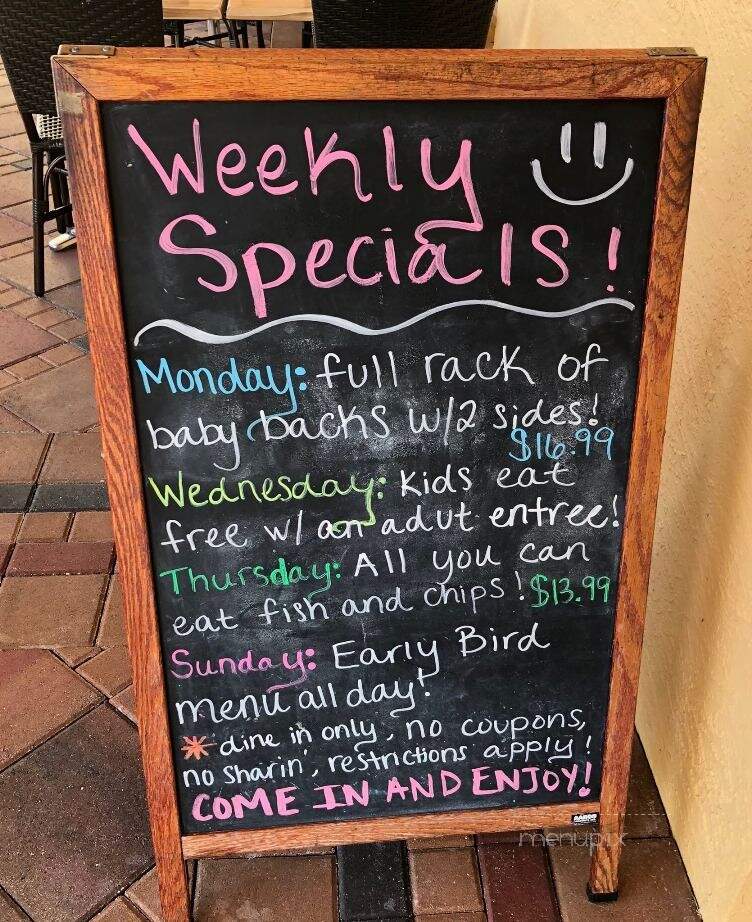 Weekly
Specials!
Monday: full rack of
baby backs w/2 sides!
$16.99
Wednesday: Kids eat
free w/ an adut entree!
Thursday: All you can
eat fish and chips! $13.99
Sunday: Early Bird
menu all day!
* dine in only, no coupons,
no sharin', restrictions apply!
COME IN AND ENJOY!
AARCO
menupix